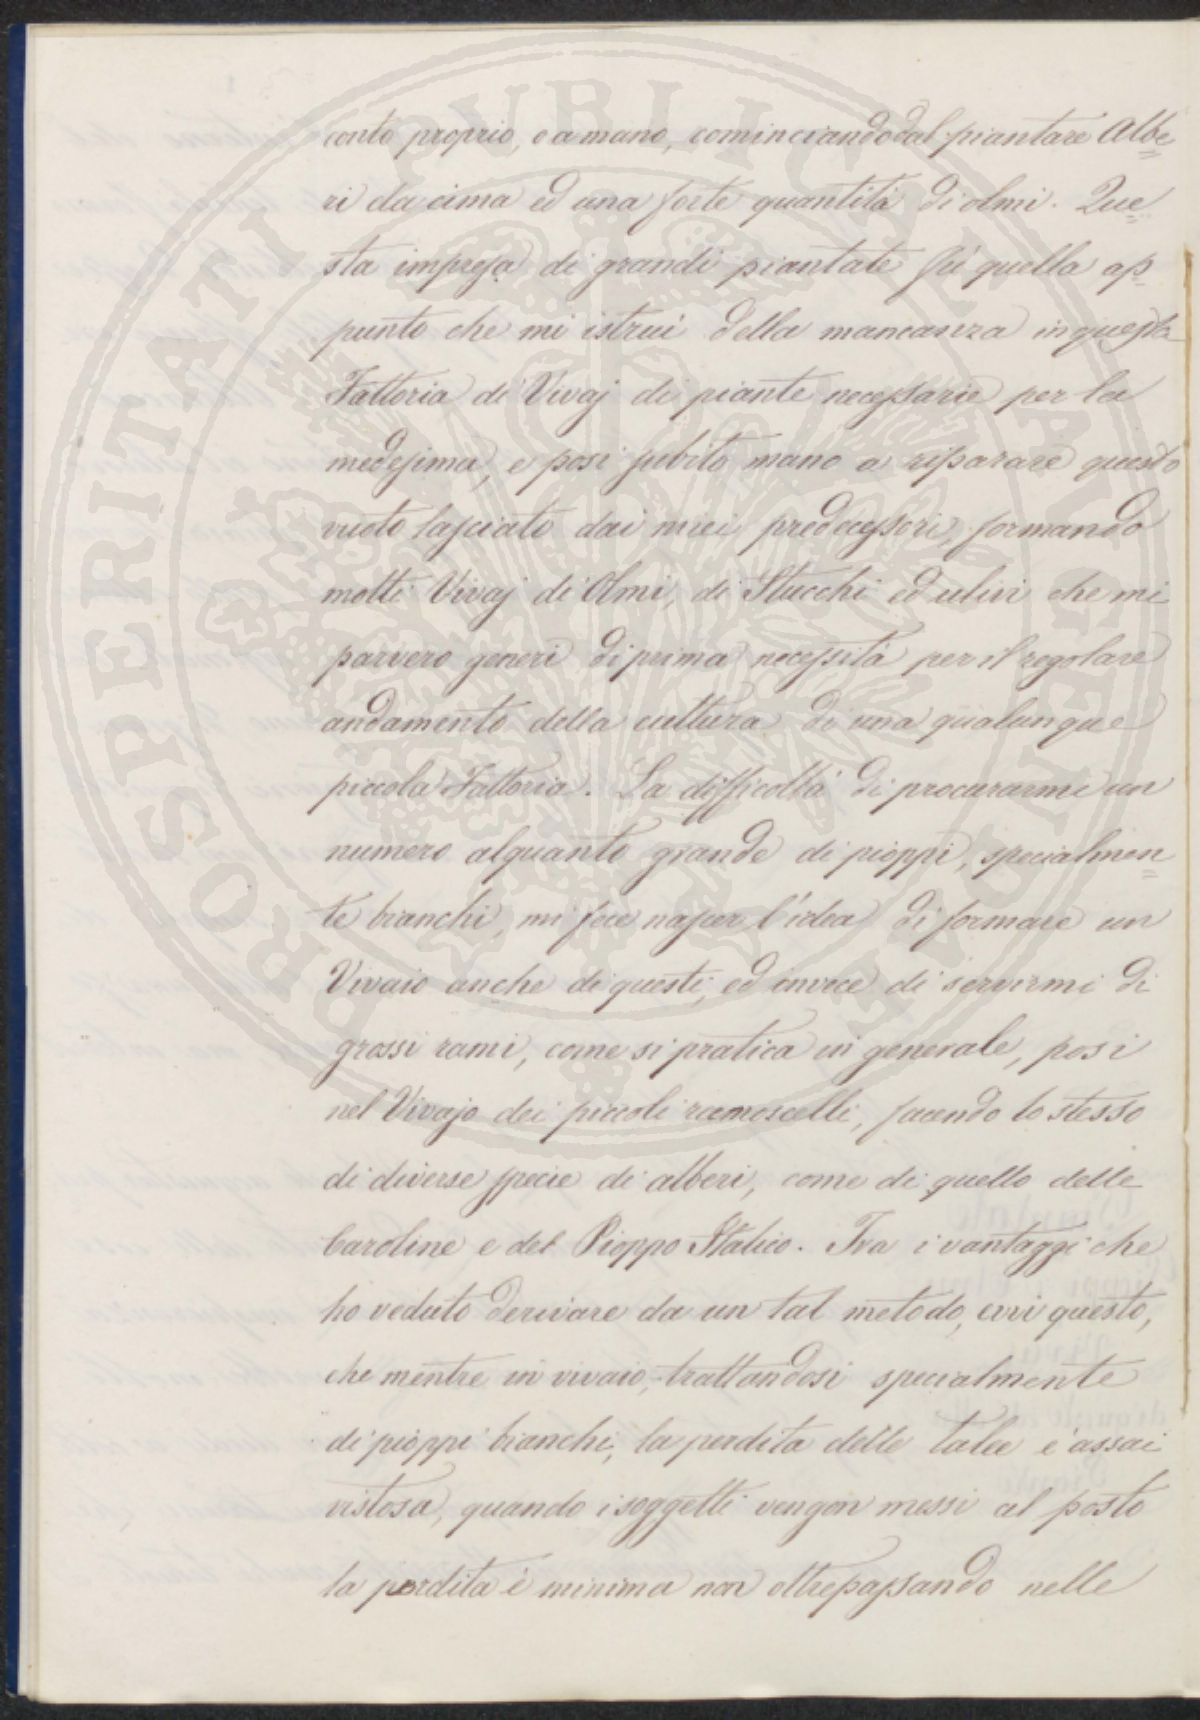 conto proprio, o a mano, cominciando dal piantare Albe=
ri da cima ed una forte quantità di olmi. Que=
sta impresa di grandi piantate fù quella ap=
punto che mi istruì della mancanza in questa
Fattoria di Vivaj di piante necessarie per la
medesima, e posi subito mano a riparare questo
vuoto lasciato dai miei predecessori, formando
molti Vivaj di Olmi, di Stucchi ed ulivi che mi
parvero generi di prima necessità per il regolare
andamento della cultura di una qualunque
piccola Fattoria. La difficoltà di procurarmi un
numero alquanto grande di pioppi, specialmen=
te bianchi, mi fece nascer l'idea di formare un
Vivaio anche di questi, ed invece di servirmi di
grossi rami, come si pratica in generale, posi
nel Vivajo dei piccoli ramoscelli, facendo lo stesso
di diverse specie di alberi, come di quello delle
Caroline e del Pioppo Italico. Tra i vantaggi che
ho veduto derivare da un tal metodo, evvi questo,
che mentre in vivaio, trattandosi specialmente
di pioppi bianchi, la perdita delle talee è assai
vistosa, quando i soggetti vengon messi al posto
la perdita è minima non oltrepassando nelle
PROSPERITATI PUBLICAE AUGENDAE